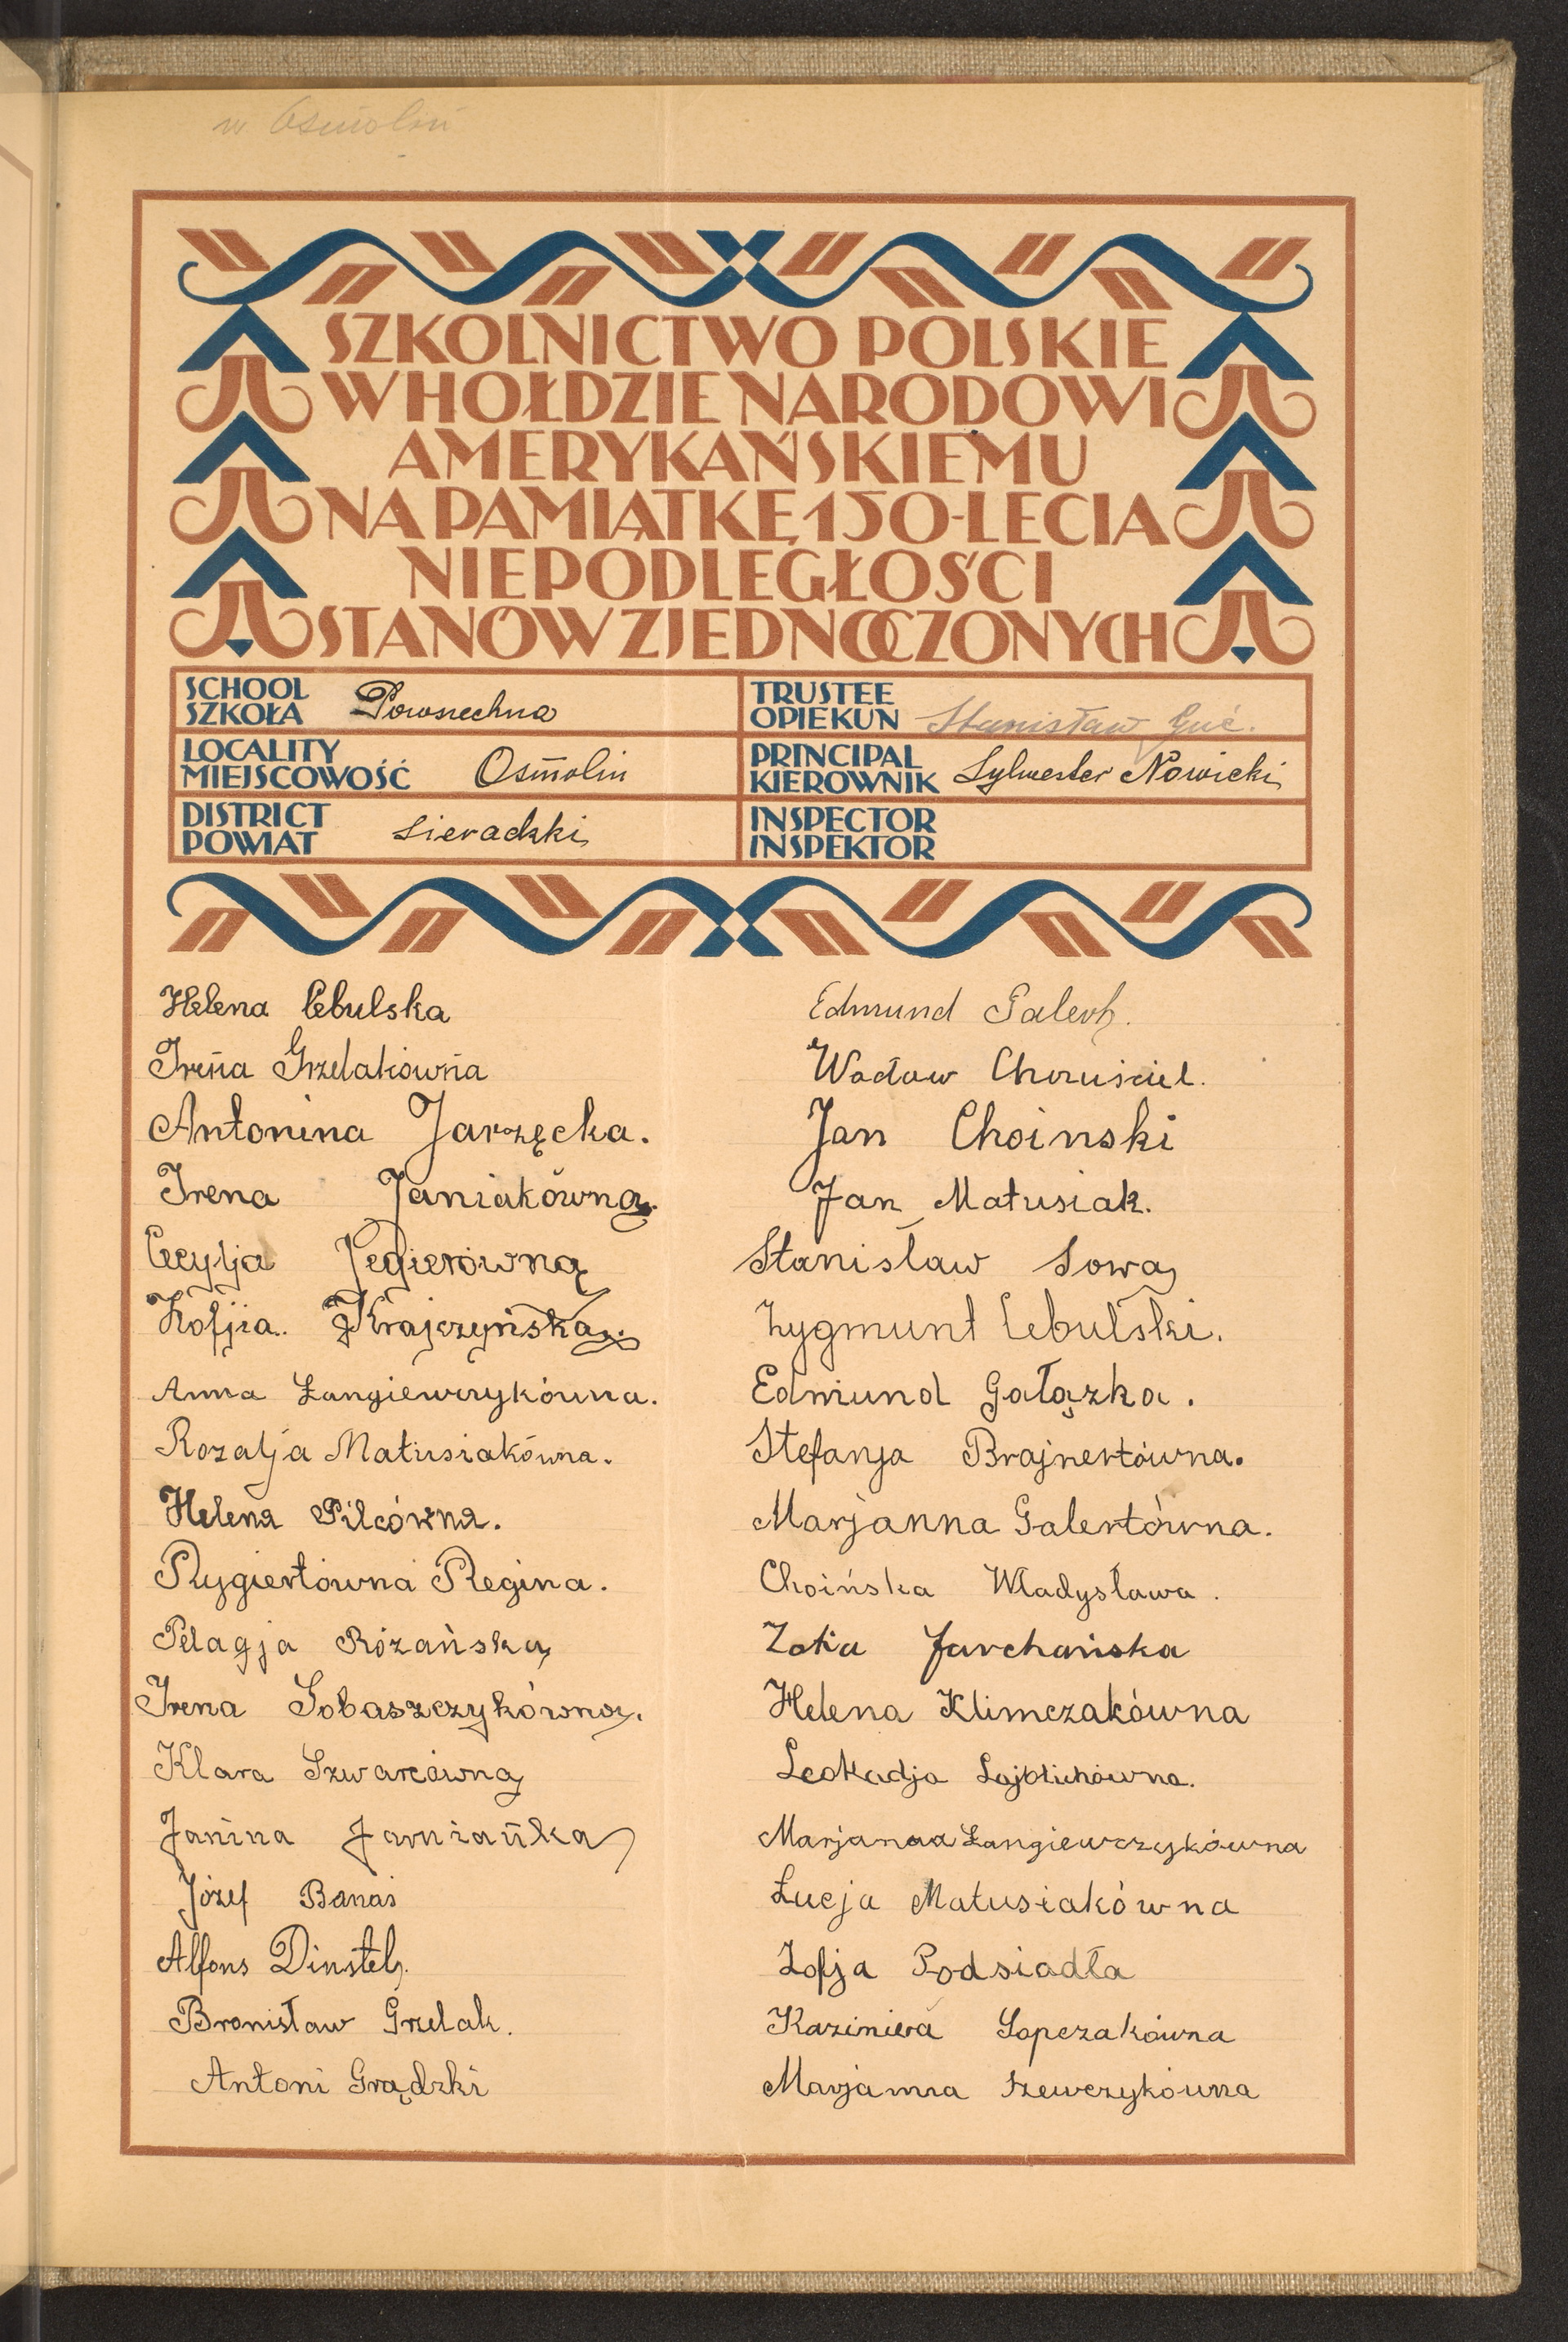 w Osmolin
SZKOLNICTWO POLSKIE
W HOŁDZIE NARODOWI
AMERYKAŃSKIEMU
NA PAMIĄTKĘ 150-LECIA
NIEPODLEGŁOŚCI
STANÓW ZJEDNOCZONYCH
SCHOOL
SZKOŁA Powszechna
TRUSTEE
OPIEKUN Stanisław Guć.
LOCALITY
MIEJSCOWOŚĆ Osmolin
PRINCIPAL
KIEROWNIK Sylwester Nowicki
DISTRICT
POWIAT sieradzki
INSPECTOR
INSPEKTOR
Helena Cebulska
Irena Grzelakówna
Antonina Jarzęcka.
Irena Janiakówna.
Cecylja Jegierówna
Zofjia.. Krajczyńska.
Anna Langiewczykówna.
Rozalja Matusiakówna.
Helena Pilcówna.
Rygiertówna Regina.
Pelagja Różańska
Irena Sobaszczykówna.
Klara Szwarcówna
Janina Jarniańka
Józef Banaś
Alfons Dinstel.
Bronisław Grzelak.
Antoni Grądzki
Edmund Galert.
Wacław Chruściel.
Jan Choinski
Jan Matusiak.
Stanisław Sowa
Zygmunt Cebulski.
Edmund Gałązka.
Stefanja Brajnertówna.
Marjanna Galertówna.
Choińska Władysława.
Zofia Jarchańska
Helena Klimczakówna
Leokadja Lajblichówna.
Marjanna Langiewczykówna
Łucja Matusiakówna
Zofja Podsiadła
Kazimiera Sopczakówna
Marjanna Szewczykówna